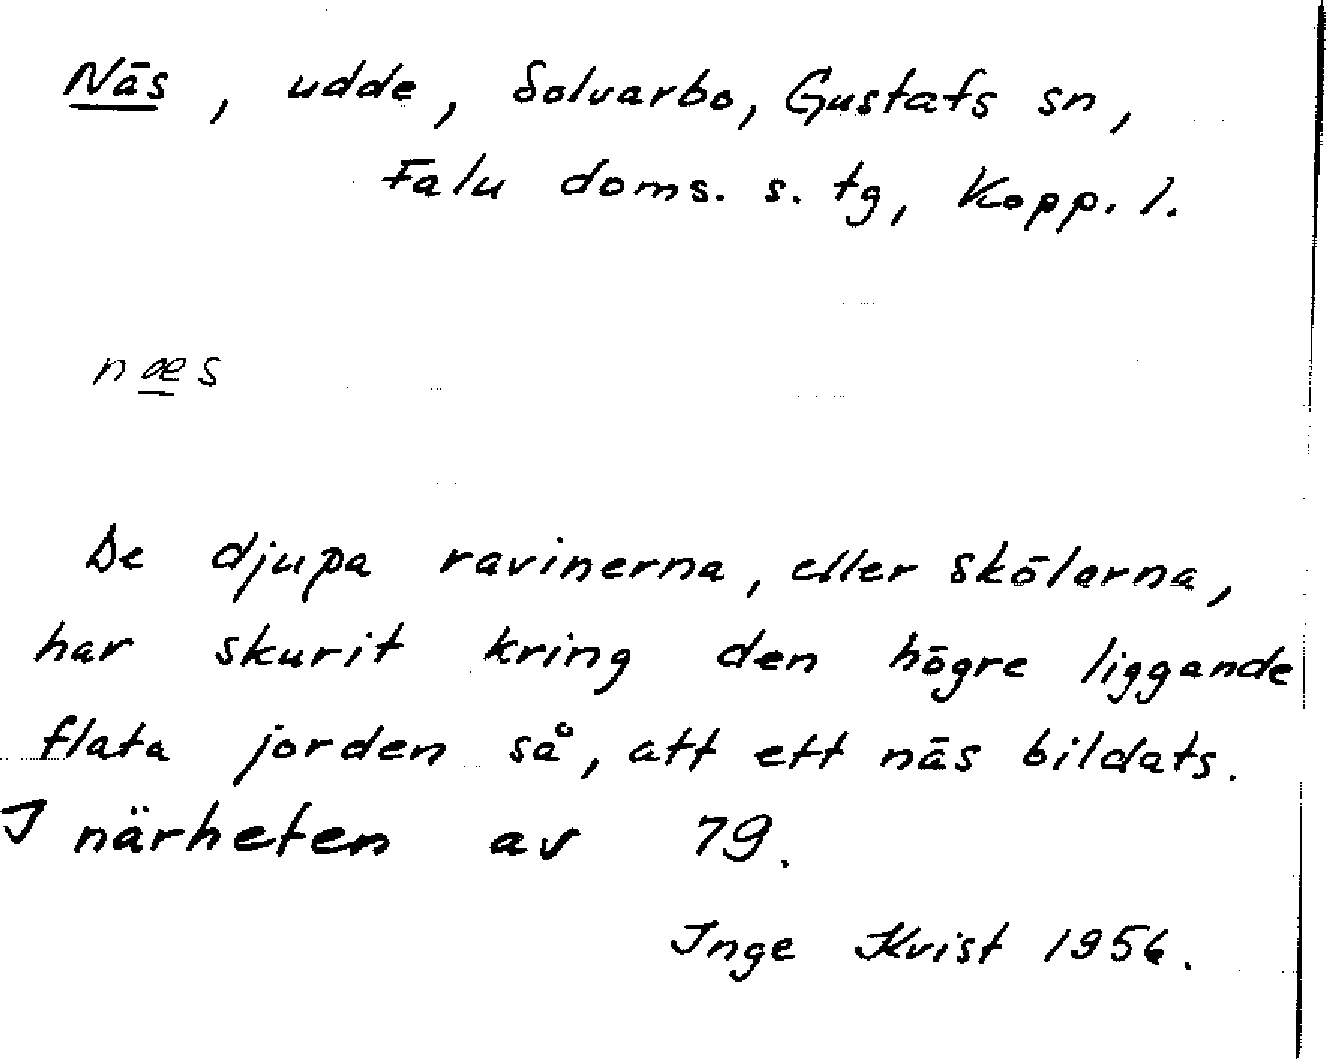 Näs, udde, Solvarbo, Gustafs sn,
Falu doms. s. tg, Kopp. l.
næs
De djupa ravinerna, eller skölarna,
har skurit kring den högre liggande
flata jorden så, att ett näs bildats.
I närheten av 79.
Inge Kvist 1956.